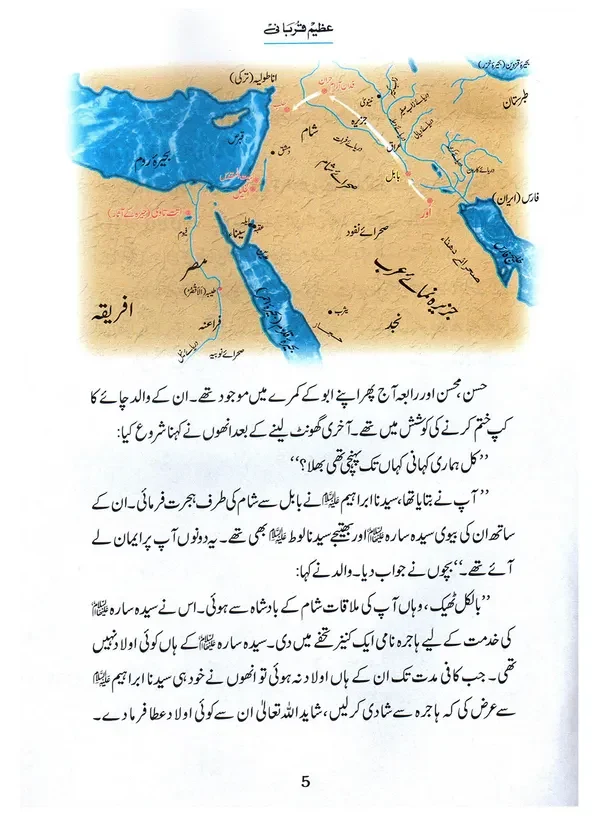 عظیم قربانی
بحیرۂ قزوین (بحیرۂ خزر)
اناطولیہ (ترکی)
طبرستان
حران
حلب
نینویٰ
جزیرہ
شام
قبرص
بحیرۂ روم
دمشق
دریائے فرات
عراق
صحرائے شام
بابل
اُور
فارس (ایران)
خلیج فارس
صحرائے نفود
صحرائے دھناء
سیناء
عقبہ
فیوم
مصر
طیبہ (الاقصر)
جزیرہ نمائے عرب
افریقہ
فراعنہ
صحرائے نوبیہ
یثرب
حجاز
نجد
حسن، محسن اور رابعہ آج پھر اپنے ابو کے کمرے میں موجود تھے۔ ان کے والد چائے کا
کپ ختم کرنے کی کوشش میں تھے۔ آخری گھونٹ لینے کے بعد انھوں نے کہنا شروع کیا:
”کل ہماری کہانی کہاں تک پہنچی تھی بھلا؟“
”آپ نے بتایا تھا، سیدنا ابراہیم علیہ السلام نے بابل سے شام کی طرف ہجرت فرمائی۔ ان کے
ساتھ ان کی بیوی سیدہ سارہ علیہا السلام اور بھتیجے سیدنا لوط علیہ السلام بھی تھے۔ یہ دونوں آپ پر ایمان لے
آئے تھے۔“ بچوں نے جواب دیا۔ والد نے کہا:
”بالکل ٹھیک، وہاں آپ کی ملاقات شام کے بادشاہ سے ہوئی۔ اس نے سیدہ سارہ علیہا السلام
کی خدمت کے لیے ہاجرہ نامی ایک کنیز تحفے میں دی۔ سیدہ سارہ علیہا السلام کے ہاں کوئی اولاد نہیں
تھی۔ جب کافی مدت تک ان کے ہاں اولاد نہ ہوئی تو انھوں نے خود ہی سیدنا ابراہیم علیہ السلام
سے عرض کی کہ ہاجرہ سے شادی کر لیں، شاید اللہ تعالیٰ ان سے کوئی اولاد عطا فرما دے۔
5